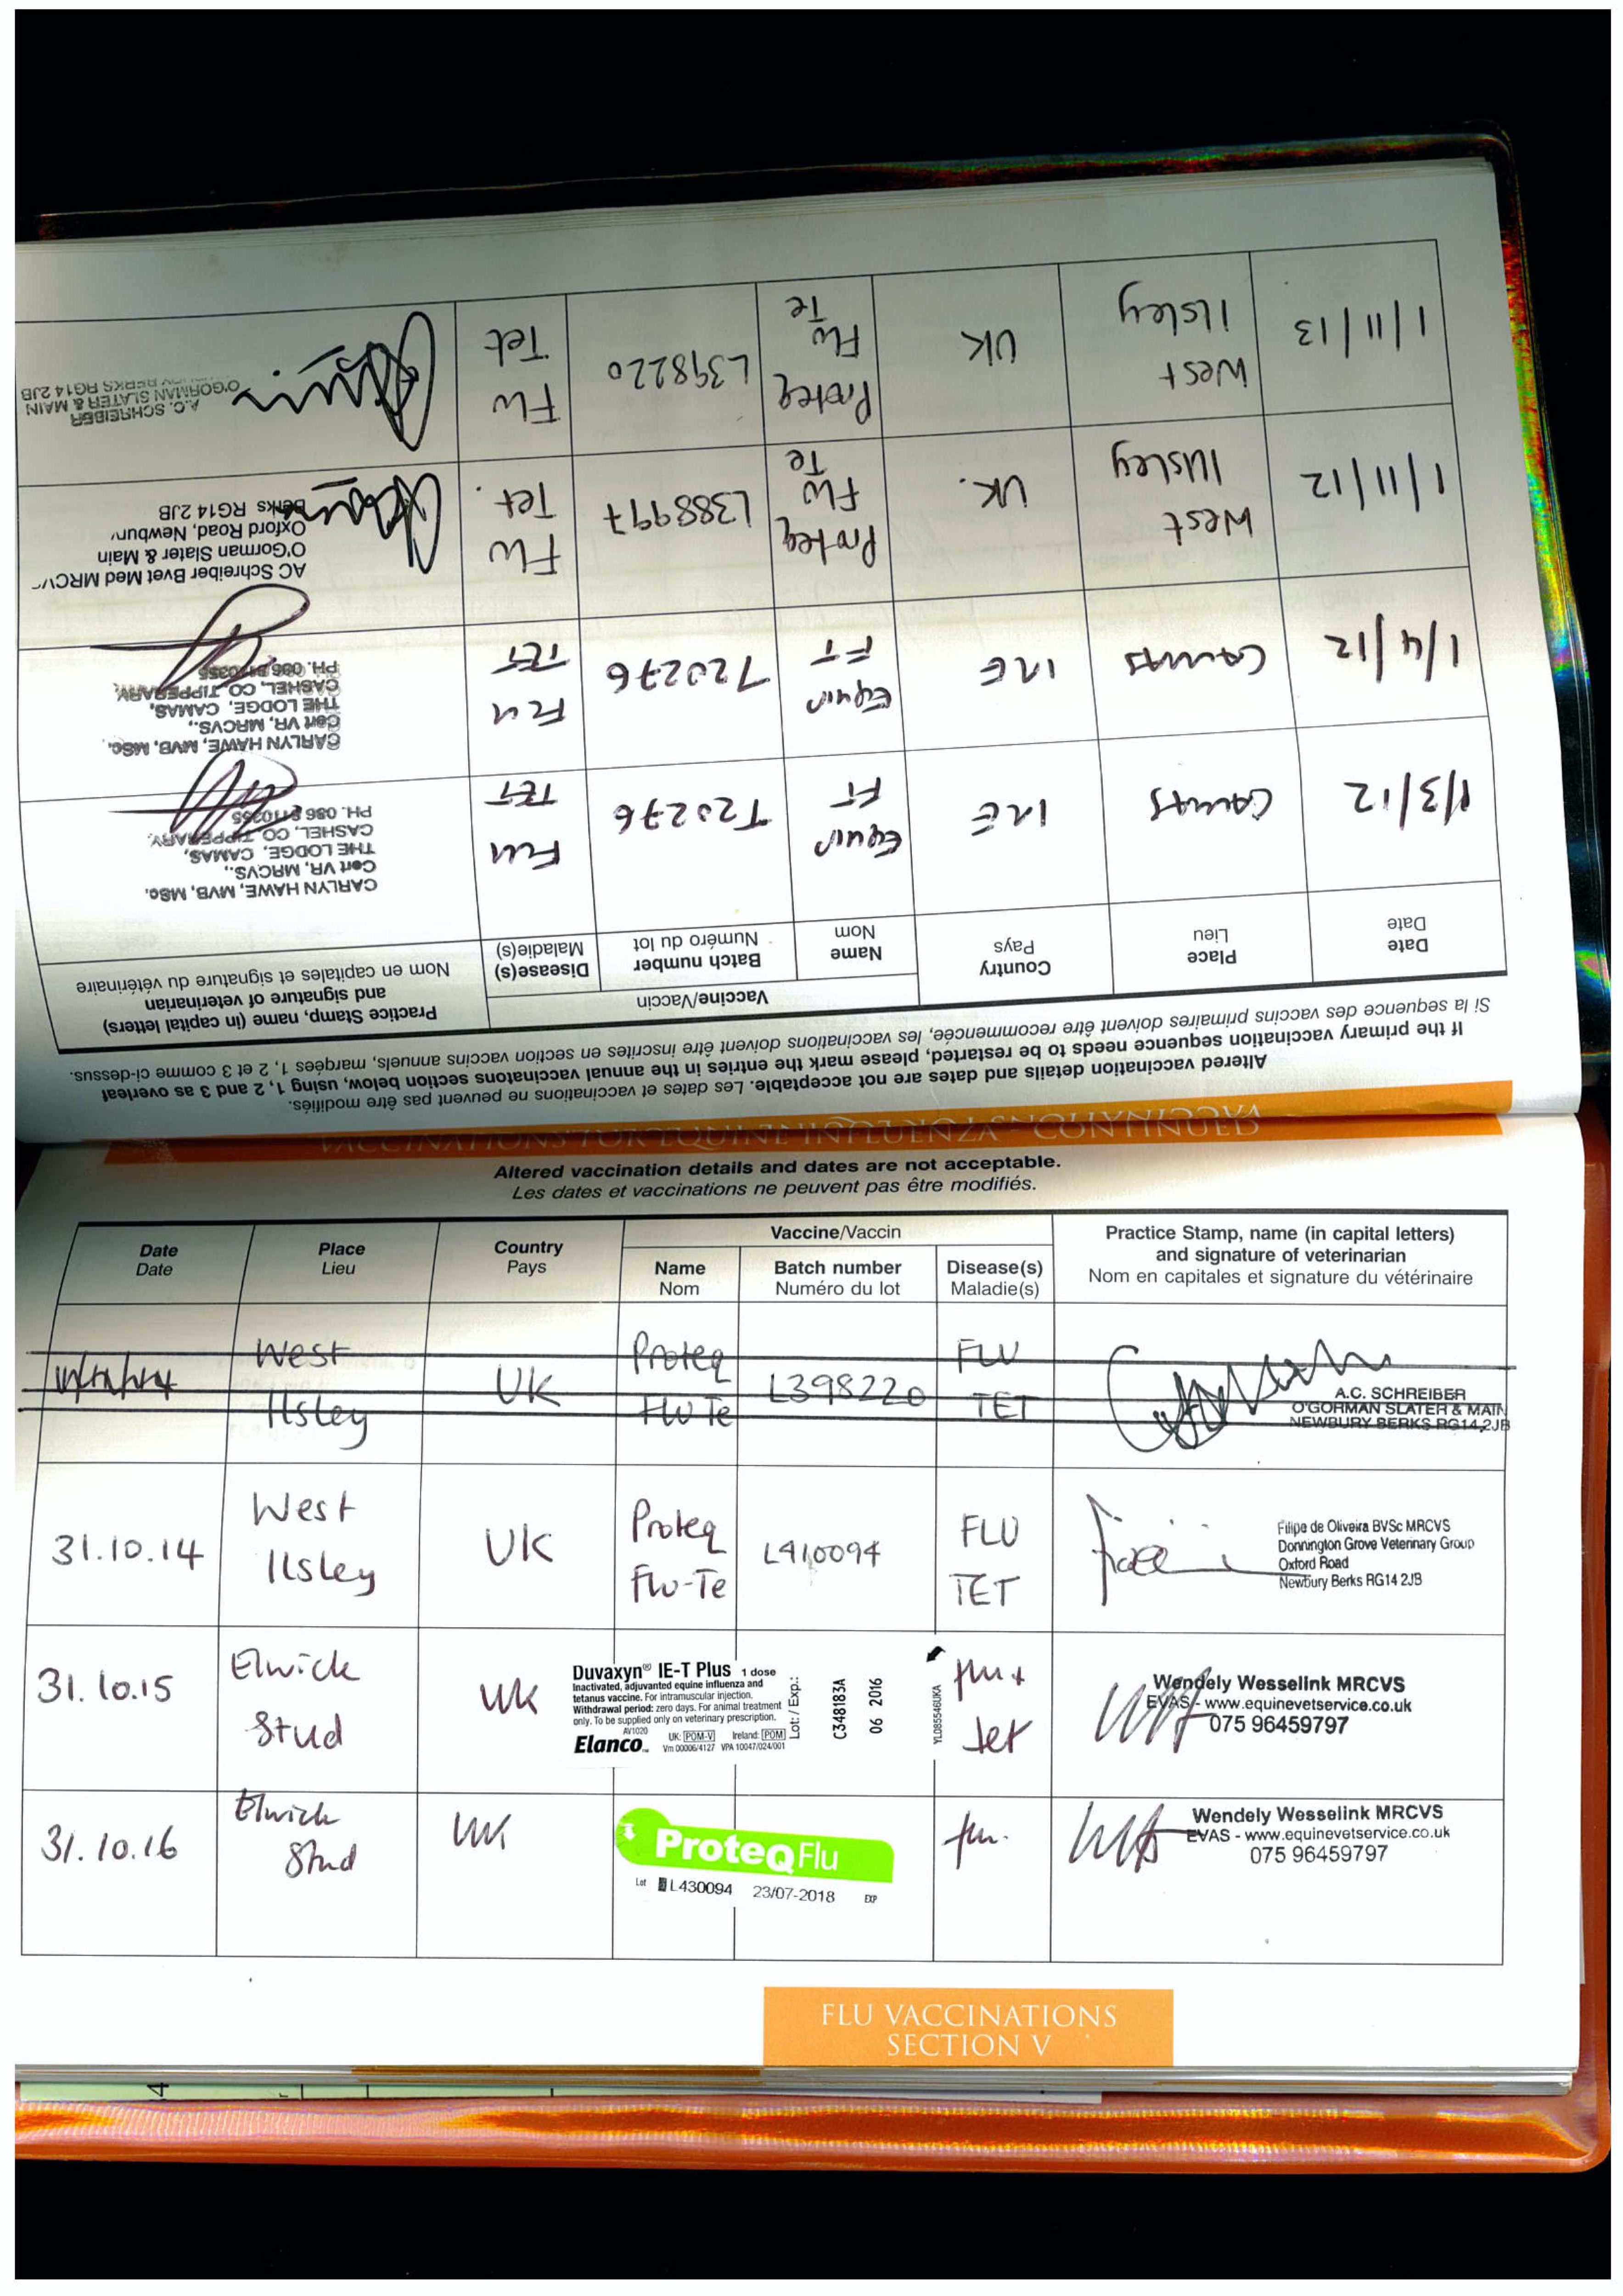 VACCINATIONS FOR EQUINE INFLUENZA - CONTINUED
Altered vaccination details and dates are not acceptable. Les dates et vaccinations ne peuvent pas être modifiés.
If the primary vaccination sequence needs to be restarted, please mark the entries in the annual vaccinatons section below, using 1, 2 and 3 as overleaf
Si la sequence des vaccins primaires doivent être recommencée, les vaccinations doivent être inscrites en section vaccins annuels, marqées 1, 2 et 3 comme ci-dessus.
Date
Date
Place
Lieu
Country
Pays
Vaccine/Vaccin
Name
Nom
Batch number
Numéro du lot
Disease(s)
Maladie(s)
Practice Stamp, name (in capital letters)
and signature of veterinarian
Nom en capitales et signature du vétérinaire
1/3/12
Camas
IRE
Equip
FT
T20276
Flu
TET
CARLYN HAWE, MVB, MSc.
Cert VR, MRCVS.,
THE LODGE, CAMAS,
CASHEL, CO. TIPPERARY.
PH. 086
1/4/12
Camas
IRE
Equip
FT
T20276
Flu
TET
CARLYN HAWE, MVB, MSc.
Cert VR, MRCVS.,
THE LODGE, CAMAS,
CASHEL, CO. TIPPERARY.
PH. 086
1/11/12
West
Illsley
UK.
Proteq
Flu
Te
L388997
Flu
Tet.
AC Schreiber Bvet Med MRCV
O'Gorman Slater & Main
Oxford Road, Newbury
Berks RG14 2JB
1/11/13
West
Ilsley
UK
Proteq
Flu
Te
L398220
Flu
Tet
A.C. SCHREIBER
O'GORMAN SLATER & MAIN
BERKS RG14 2JB
Altered vaccination details and dates are not acceptable.
Les dates et vaccinations ne peuvent pas être modifiés.
Date
Date
Place
Lieu
Country
Pays
Vaccine/Vaccin
Name
Nom
Batch number
Numéro du lot
Disease(s)
Maladie(s)
Practice Stamp, name (in capital letters)
and signature of veterinarian
Nom en capitales et signature du vétérinaire
West
Ilsley
UK
Proteq
Flu Te
L398220
FLU
TET
A.C. SCHREIBER
O'GORMAN SLATER & MAIN
NEWBURY BERKS RG14 2JB
31.10.14
West
Ilsley
UK
Proteq
Flu-Te
L410094
FLU
TET
Filipe de Oliveira BVSc MRCVS
Donnington Grove Veterinary Group
Oxford Road
Newbury Berks RG14 2JB
31.10.15
Elwick
Stud
UK
Duvaxyn® IE-T Plus 1 dose
Inactivated, adjuvanted equine influenza and
tetanus vaccine. For intramuscular injection.
Withdrawal period: zero days. For animal treatment
only. To be supplied only on veterinary prescription.
AV1020
Elanco
UK: POM-V Ireland: POM
Vm 00006/4127 VPA 10047/024/001
Lot: / Exp.:
C348183A
06 2016
YL085546UKA
flu +
tet
Wendely Wesselink MRCVS
EVAS - www.equinevetservice.co.uk
075 96459797
31.10.16
Elwick
Stud
UK
ProteqFlu
Lot L430094 23/07-2018 EXP
flu.
Wendely Wesselink MRCVS
EVAS - www.equinevetservice.co.uk
075 96459797
FLU VACCINATIONS
SECTION V